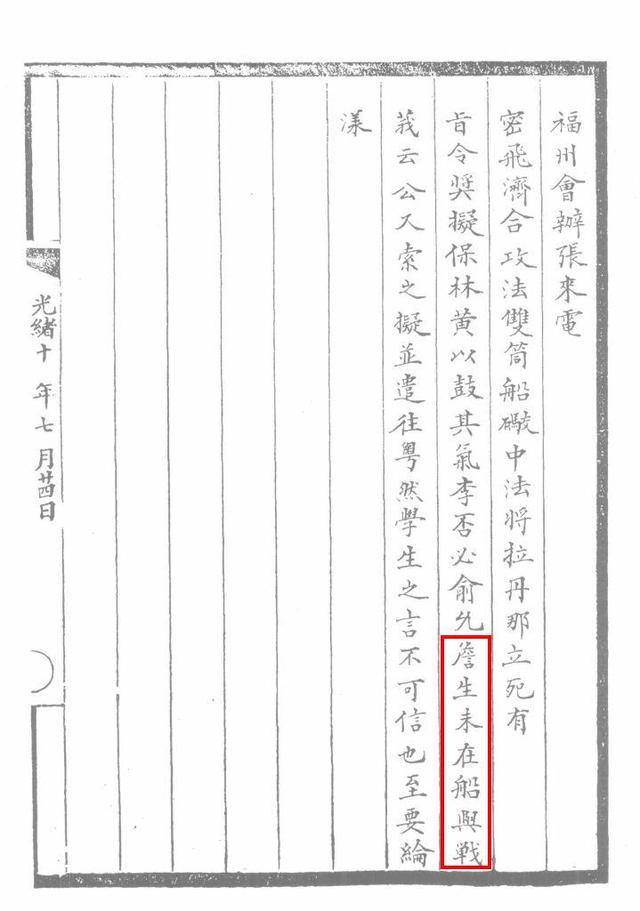 福州會辦張來電
密飛濟合攻法雙筒船礮中法將拉丹那立死有
旨令奬擬保林黃以鼓其氣李否必俞允詹生未在船與戦
莪云公又索之擬並遣往粤然學生之言不可信也至要綸
漾
光緒十年七月廿四日